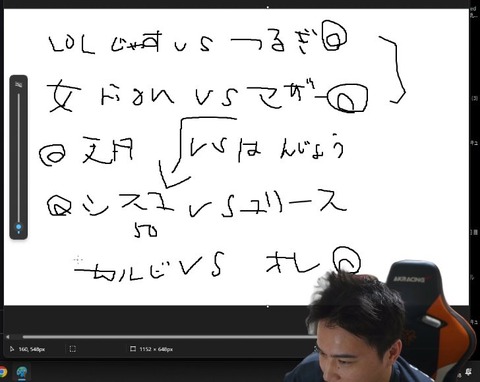 LOL じゃす VS つるぎ
女 VS マザー
VS はんじょう
シスコ VS ユリース
50
カルビ VS オレ
160, 548px
1152 × 648px
AKRACING